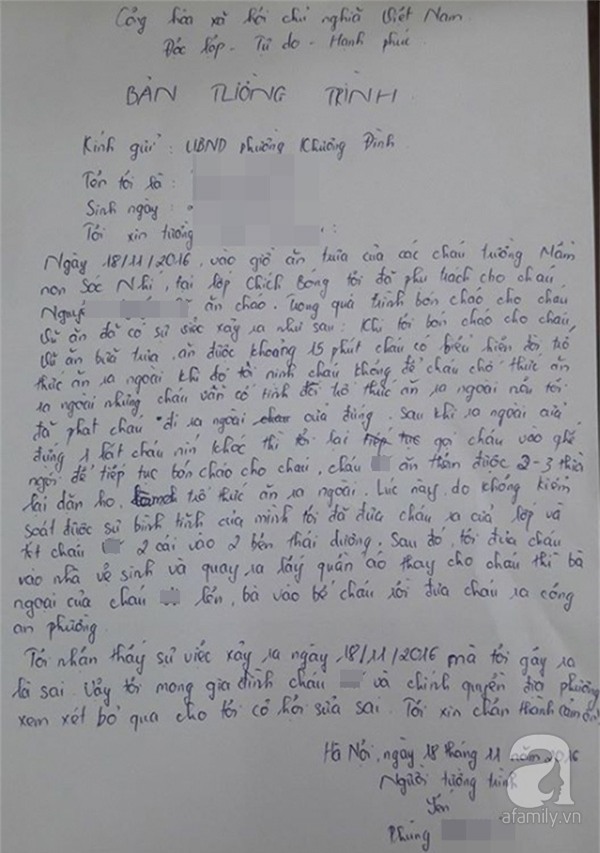 Cộng hòa xã hội chủ nghĩa Việt Nam
Độc lập - Tự do - Hạnh phúc
BẢN TƯỜNG TRÌNH
Kính gửi : UBND phường Khương Đình
Tên tôi là :
Sinh ngày :
Tôi xin tường :
Ngày 18/11/2016, vào giờ ăn trưa của các cháu trường Mầm
non Sóc Nhí, tại lớp Chích Bông tôi đã phụ trách cho cháu
Nguyễ ăn cháo. Trong quá trình bón cháo cho cháu
ăn đã có sự việc xảy ra như sau : Khi tôi bón cháo cho cháu
ăn bữa trưa, ăn được khoảng 15 phút cháu có biểu hiện đòi trớ
thức ăn ra ngoài khi đó tôi nịnh cháu không để cháu chớ thức ăn
ra ngoài nhưng cháu vẫn cố tình đòi trớ thức ăn ra ngoài nên tôi
đã phạt cháu đi ra ngoài cửa đứng. Sau khi ra ngoài cửa
đứng 1 lát cháu nín khóc thì tôi lại gọi cháu vào ghế
ngồi để tiếp tục bón cháo cho cháu, cháu ăn thêm được 2-3 thìa
lại dặn ho, trớ thức ăn ra ngoài. Lúc này, do không kiểm
soát được sự bình tĩnh của mình tôi đã đưa cháu ra cửa lớp và
tét cháu 2 cái vào 2 bên thái dương. Sau đó, tôi đưa cháu
vào nhà vệ sinh và quay ra lấy quần áo thay cho cháu thì bà
ngoại của cháu lên, bà vào bế cháu rồi đưa cháu ra công
an phường.
Tôi nhận thấy sự việc xảy ra ngày 18/11/2016 mà tôi gây ra
là sai. Vậy tôi mong gia đình cháu và chính quyền địa phương
xem xét bỏ qua cho tôi cơ hội sửa sai. Tôi xin chân thành cảm ơn!
Hà Nội, ngày 18 tháng 11 năm 2016
Người tường trình
Yến
Phùng
a
afamily.vn